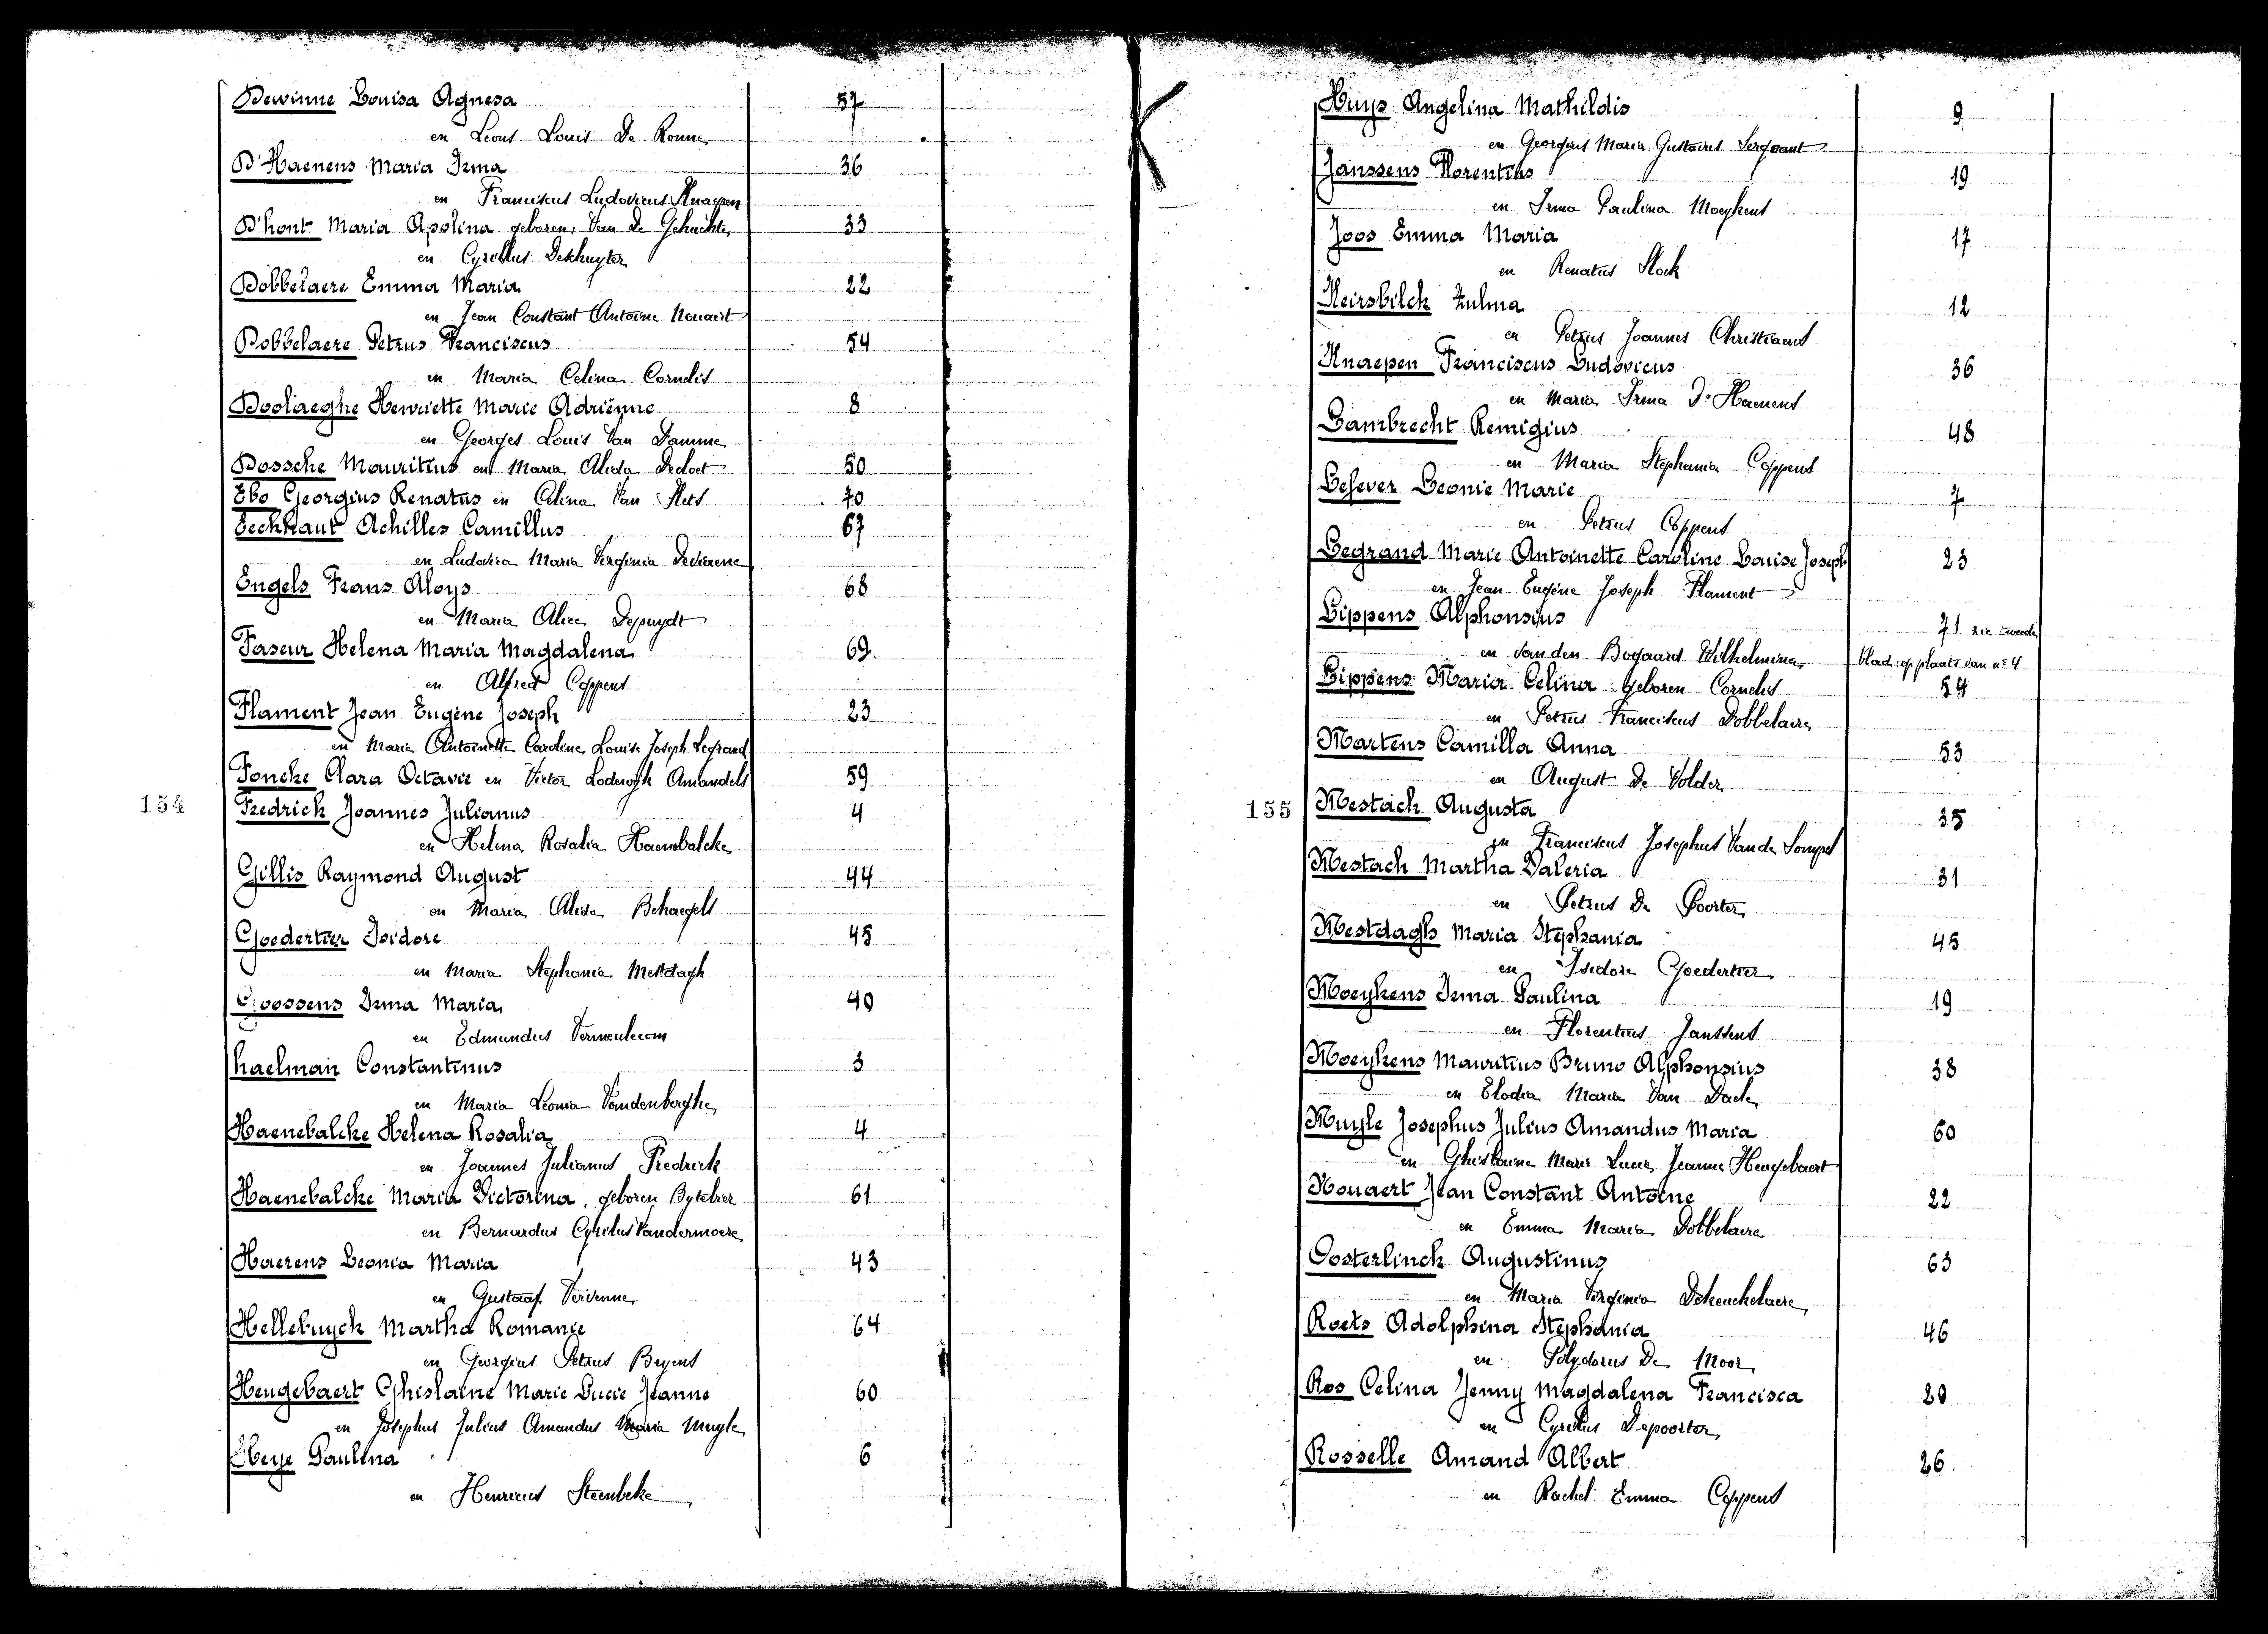 Dewinne Louisa Agnesa 57
en Leons Louis De Ronne
D'Haenens Maria Irma 36
en Franciscus Ludovicus Knaepen
D'hont Maria Apolina geboren Van De Gehuchte 33
en Cyrillus Deschuyter
Dobbelaere Emma Maria 22
en Jean Constant Antoine Nouaert
Dobbelaere Petrus Franciscus 54
en Maria Celina Cornelis
Doolaeghe Henriette Marie Adriënne 8
en Georges Louis Van Damme
Dossche Mauritius en Maria Alida Decloet 50
Ebo Georgius Renatus en Celina Van 70
Eeckhaut Achilles Camillus 67
en Ludovica Maria Virginia
Engels Frans Aloys 68
en Maria Alice Depuydt
Faseur Helena Maria Magdalena 69
en Alfred Coppens
Flament Jean Eugène Joseph 23
en Marie Antoinette Caroline Louise Joseph Legrand
Foncke Clara Octavie en Victor Lodewyk Amandels 59
154
Fredrick Joannes Julianus 4
en Helena Rosalia Haenebalcke
Gillis Raymond August 44
en Maria Alida Behaegels
Goedertier Isidore 45
en Maria Stephania Mestdagh
Goossens Irma Maria 40
en Edmundus
haelman Constantinus 3
en Maria Leonia Vandenberghe
Haenebalcke Helena Rosalia 4
en Joannes Julianus Fredrick
Haenebalcke Maria Victorina, geboren Bytebier 61
en Bernardus Cyrilus Vandermoere
Haerens Leonia Maria 43
en Gustaaf Vervenne
Hellebuyck Martha Romanie 64
en Georgius Petrus Beyens
Heugebaert Ghislaine Marie Lucie Jeanne 60
en Josephus Julius Amandus Maria Muyle
Heye Paulina 6
en Henricus Steenbeke
K
Huys Angelina Mathildis 9
en Georgius Maria Gustavus Sergeant
Janssens Florentius 19
en Irma Paulina Moeykens
Joos Emma Maria 17
en Renatus Stock
Keirsbilck Zulma 12
en Petrus Joannes Christiaens
Knaepen Franciscus Ludovicus 36
en Maria Irma D'Haenens
Lambrecht Remigius 48
en Maria Stephania Coppens
Lefever Leonie Marie 7
en Petrus Coppens
Legrand Marie Antoinette Caroline Louise Joseph 23
en Jean Eugène Joseph Flament
Lippens Alphonsius 71 zie tweede
en van den Bogaard Wilhelmina blad: op plaats van n° 4
Lippens Maria Celina geboren Cornelis 54
en Petrus Franciscus Dobbelaere
Martens Camilla Anna 53
en August De Volder
155
Mestach Augusta 35
en Franciscus Josephus Van de Sompel
Mestach Martha Valeria 31
en Petrus De Poorter
Mestdagh Maria Stephania 45
en Isidore Goedertier
Moeykens Irma Paulina 19
en Florentius Janssens
Moeykens Mauritius Bruno Alphonsius 38
en Elodia Maria Van Daele
Muyle Josephus Julius Amandus Maria 60
en Ghislaine Marie Lucie Jeanne Heugebaert
Nouaert Jean Constant Antoine 22
en Emma Maria Dobbelaere
Oosterlinck Augustinus 63
en Maria Virginia Dekeuckelaere
Roets Adolphina Stephania 46
en Polydorus De Moor
Ros Celina Jenny Magdalena Francisca 20
en Cyrillus Depoorter
Rosselle Amand Albert 26
en Rachel Emma Coppens